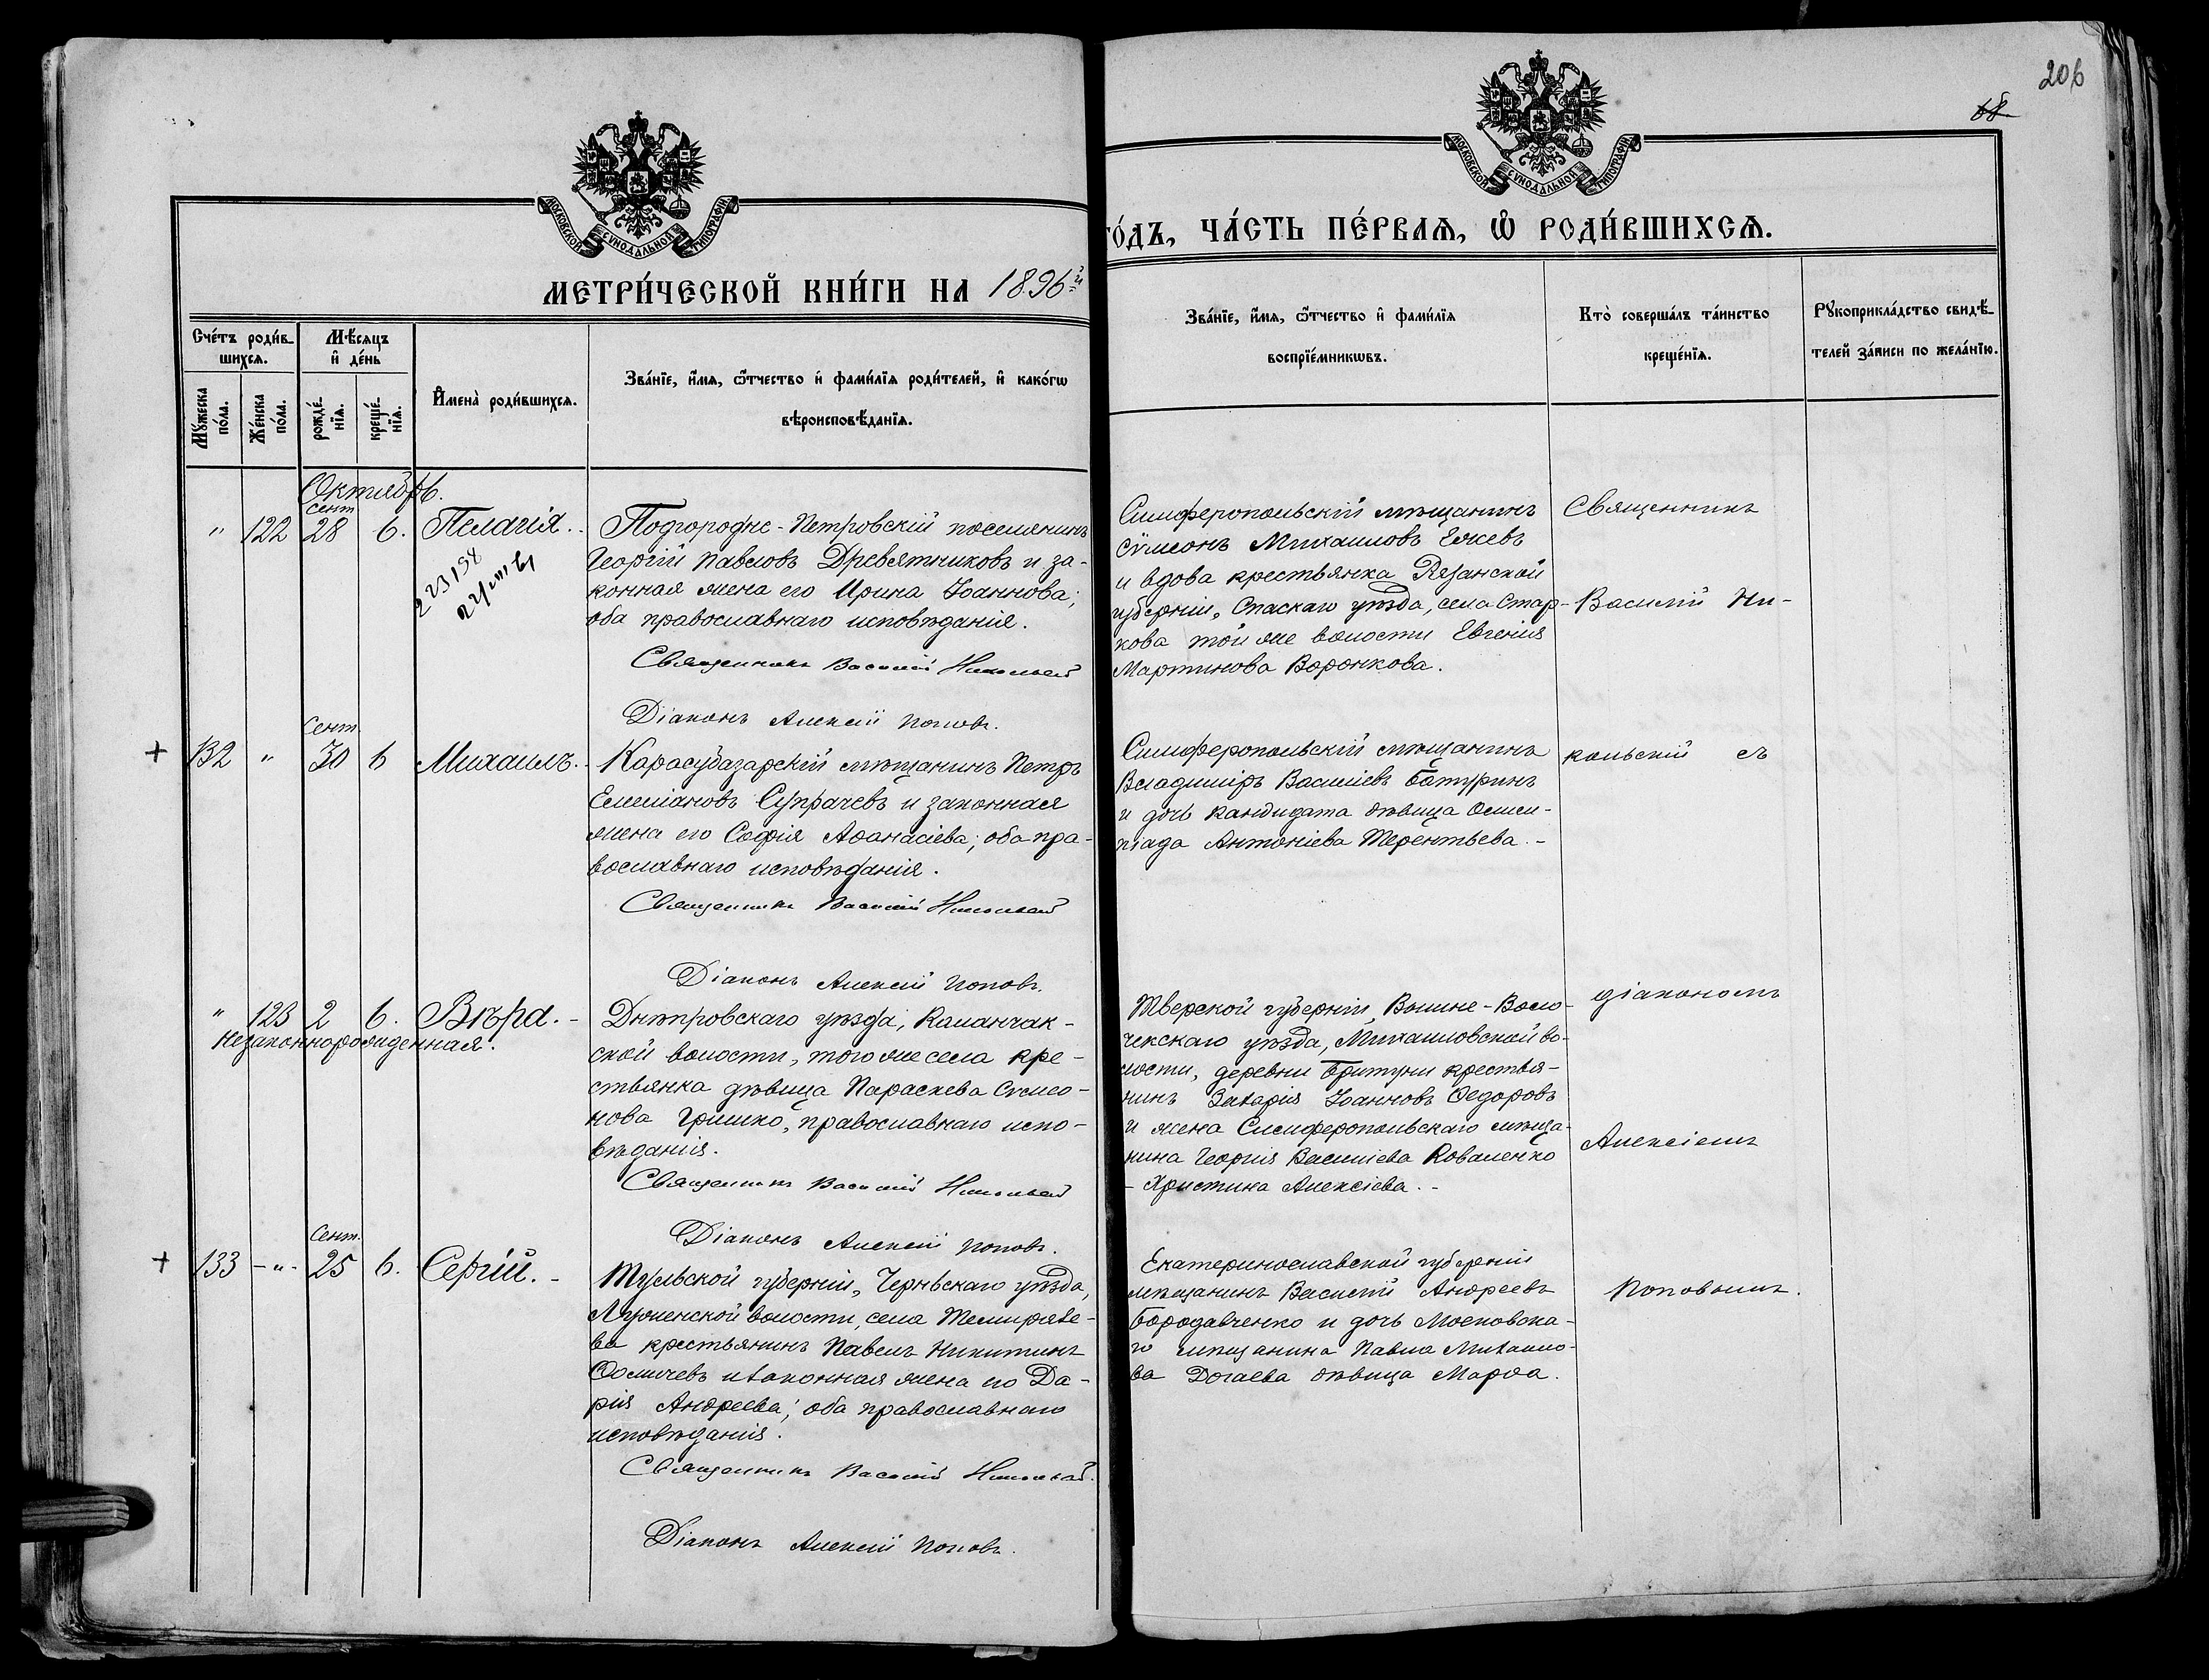 206
68
МОСКОВСКОЙ СѴНОДАЛЬНОЙ ТИПОГРАФІИ
МОСКОВСКОЙ СѴНОДАЛЬНОЙ ТИПОГРАФІИ
МЕТРИ́ЧЕСКОЙ КНИ́ГИ НА 1896й
ГО́ДЪ, ЧА́СТЬ ПЕ́РВАѦ, Ѡ҆ РОДИ́ВШИХСѦ.
Сче́тъ роди́в-
шихсѧ.
Мꙋ́жеска по́ла.
Же́нска по́ла.
Мѣ́сѧцъ
и҆ де́нь
рожде́-нїѧ.
креще́-нїѧ.
И҆мена̀ роди́вшихсѧ.
Зва́нїе, и҆́мѧ, ѻ҆́тчество и҆ фами́лїѧ роди́телей, и҆ како́гѡ
вѣроисповѣ́данїѧ.
Зва́нїе, и҆́мѧ, ѻ҆́тчество и҆ фами́лїѧ
воспрїе́мникѡвъ.
Кто̀ соверша́лъ та́инство
креще́нїѧ.
Рꙋкоприкла́дство свидѣ́-
телей за́писи по жела́нїю.
Октябрь.
сент
" 122 28 6. Пелагія.
223198
Подгородне-Петровскій поселянинъ
Георгій Павловъ Древятниковъ и за-
конная жена его Ирина Іоаннова;
оба православнаго исповѣданія.
Священникъ Василій Никольскій
Діаконъ Алексій Поповъ.
Симферопольскій мѣщанинъ
Сѵмеонъ Михаиловъ
и вдова крестьянка Рязанской
губерніи, Спаскаго уѣзда, села Стар-
кова той же волости Евгенія
Мартинова Воронкова.
Священникъ
Василій Ни-
сент.
+ 132 " 30 6 Михаилъ.
Карасубазарскій мѣщанинъ Петръ
Емеліановъ Супрачевъ и законная
жена его Софія Аѳанасіева; оба пра-
вославнаго исповѣданія.
Священникъ Василій Никольскій
Діаконъ Алексій Поповъ.
Симферопольскій мѣщанинъ
Владиміръ Василіевъ Батуринъ
и дочь кандидата дѣвица Олим-
піада Антоніева Терентьева.-
кольскій съ
" 123 2 6. Вѣра.-
Незаконнорожденная.
Днѣпровскаго уѣзда, Каланчак-
ской волости, того же села кре-
стьянка дѣвица Параскева Сѵмео-
нова Гришко, православнаго испо-
вѣданія.
Священникъ Василій Никольскій
Діаконъ Алексій Поповъ.
Тверской губерніи, Вышне-Воло-
чекскаго уѣзда, Михаиловской во-
лости, деревни крестья-
нинъ Захарія Іоанновъ Ѳедоровъ
и жена Симферопольскаго мѣща-
нина Георгія Василіева Коваленко
- Христина Алексіева.-
діакономъ
Алексіемъ
сент.
+ 133 -"- 25 6. Сергій.-
Тульской губерніи, Черньскаго уѣзда,
волости, села
ва крестьянинъ Павелъ Никитинъ
Ѳомичевъ и законная жена его Да-
рія Андреева; оба православнаго
исповѣданія.
Священникъ Василій Никольскій.
Діаконъ Алексій Поповъ.
Екатеринославской губерніи
мѣщанинъ Василій Андреевъ
Бородавченко и дочь Московска-
го мѣщанина Павла Михаило-
ва Догаева дѣвица Марѳа.
Поповымъ.